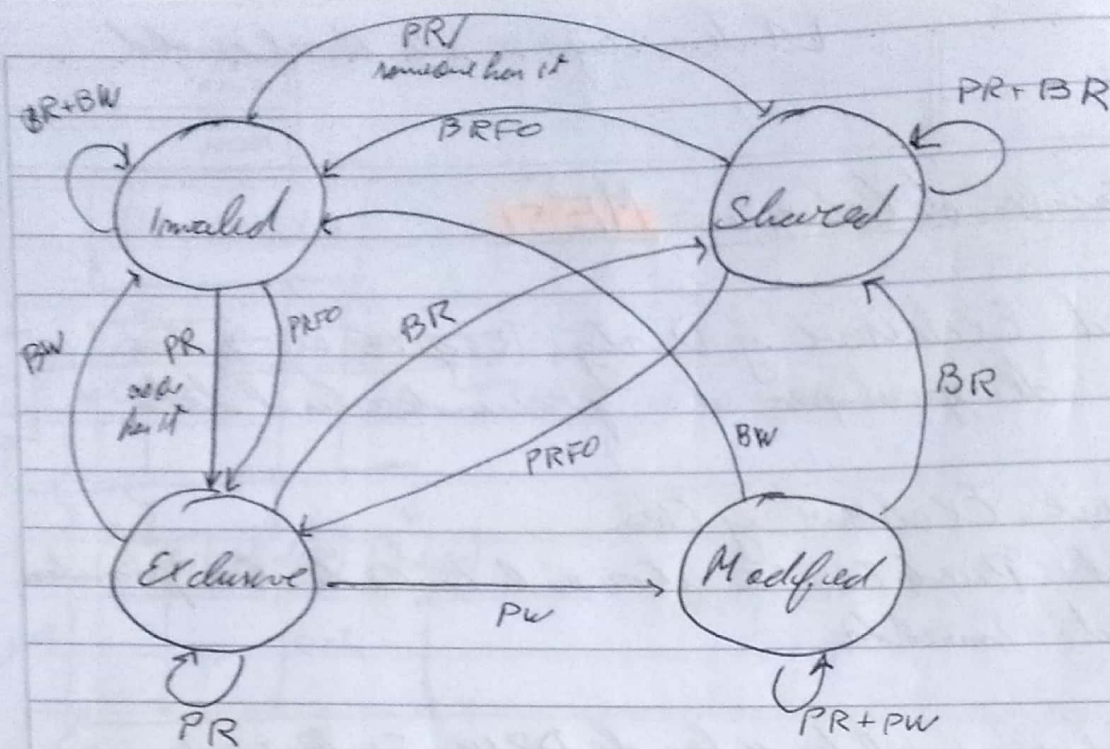 PR/
someone has it
BR+BW
BRFO
PR+BR
Invalid
Shared
MESI
BW
PR
has it
PRFO
BR
BR
PRFO
BW
Exclusive
Modified
PW
PR
PR+PW